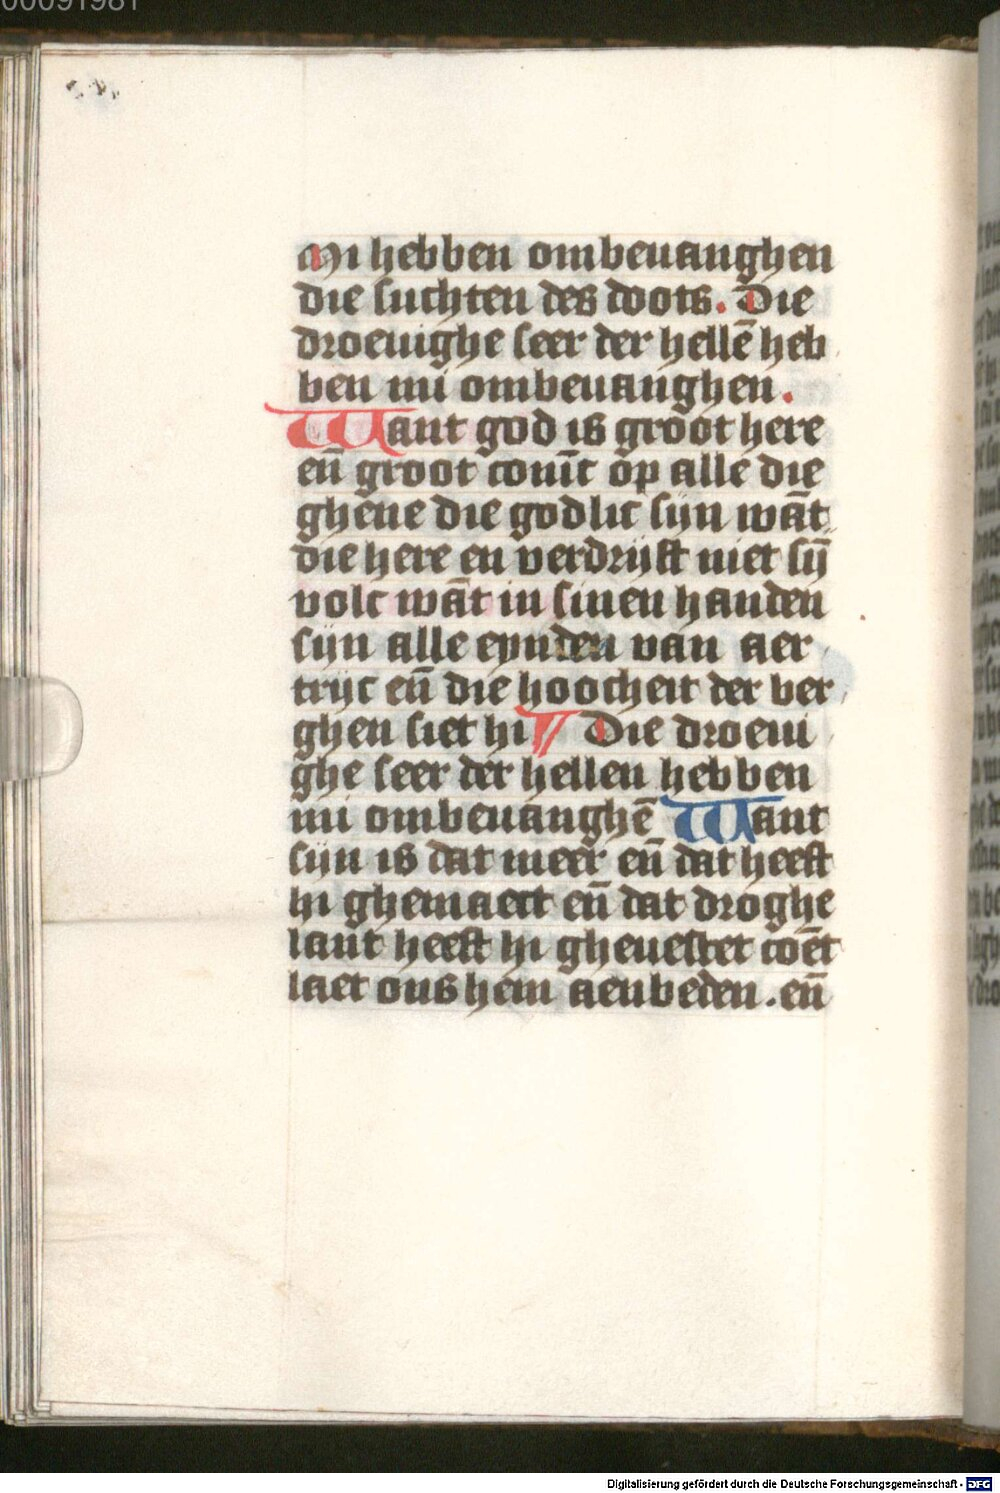 00091981
Mi hebben ombeuanghen
die suchten des doots. Die
droeuighe seer der hellē heb
ben mi ombeuanghen.
Want god is groot here
eñ groot conīc op alle die
ghene die godlic sijn wāt
die here en verdrijft niet sij̄
volc wāt in sinen handen
sijn alle eynden van aer
trijc eñ die hoocheit der ber
ghen siet hi Die droeui
ghe seer der hellen hebben
mi ombeuanghē Want
sijn is dat meer eñ dat heeft
hi ghemaect eñ dat droghe
lant heeft hi gheuestet coēt
laet ons hem aenbeden. eñ
Digitalisierung gefördert durch die Deutsche Forschungsgemeinschaft - DFG